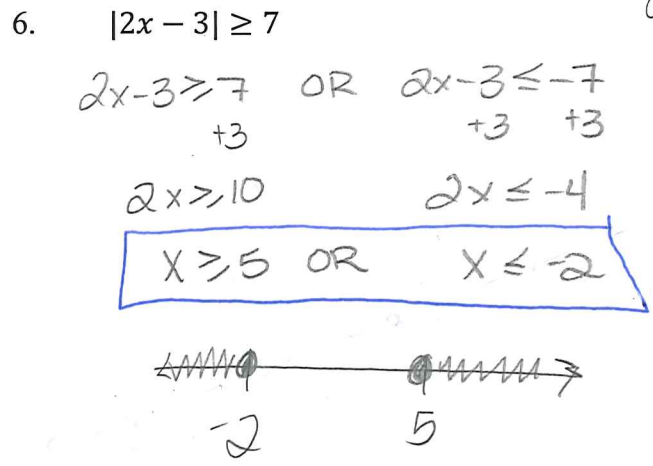 6. |2x − 3| ≥ 7
2x-3≥7 OR 2x-3≤-7
+3 +3 +3
2x≥10 2x≤-4
x≥5 OR x≤-2
-2 5